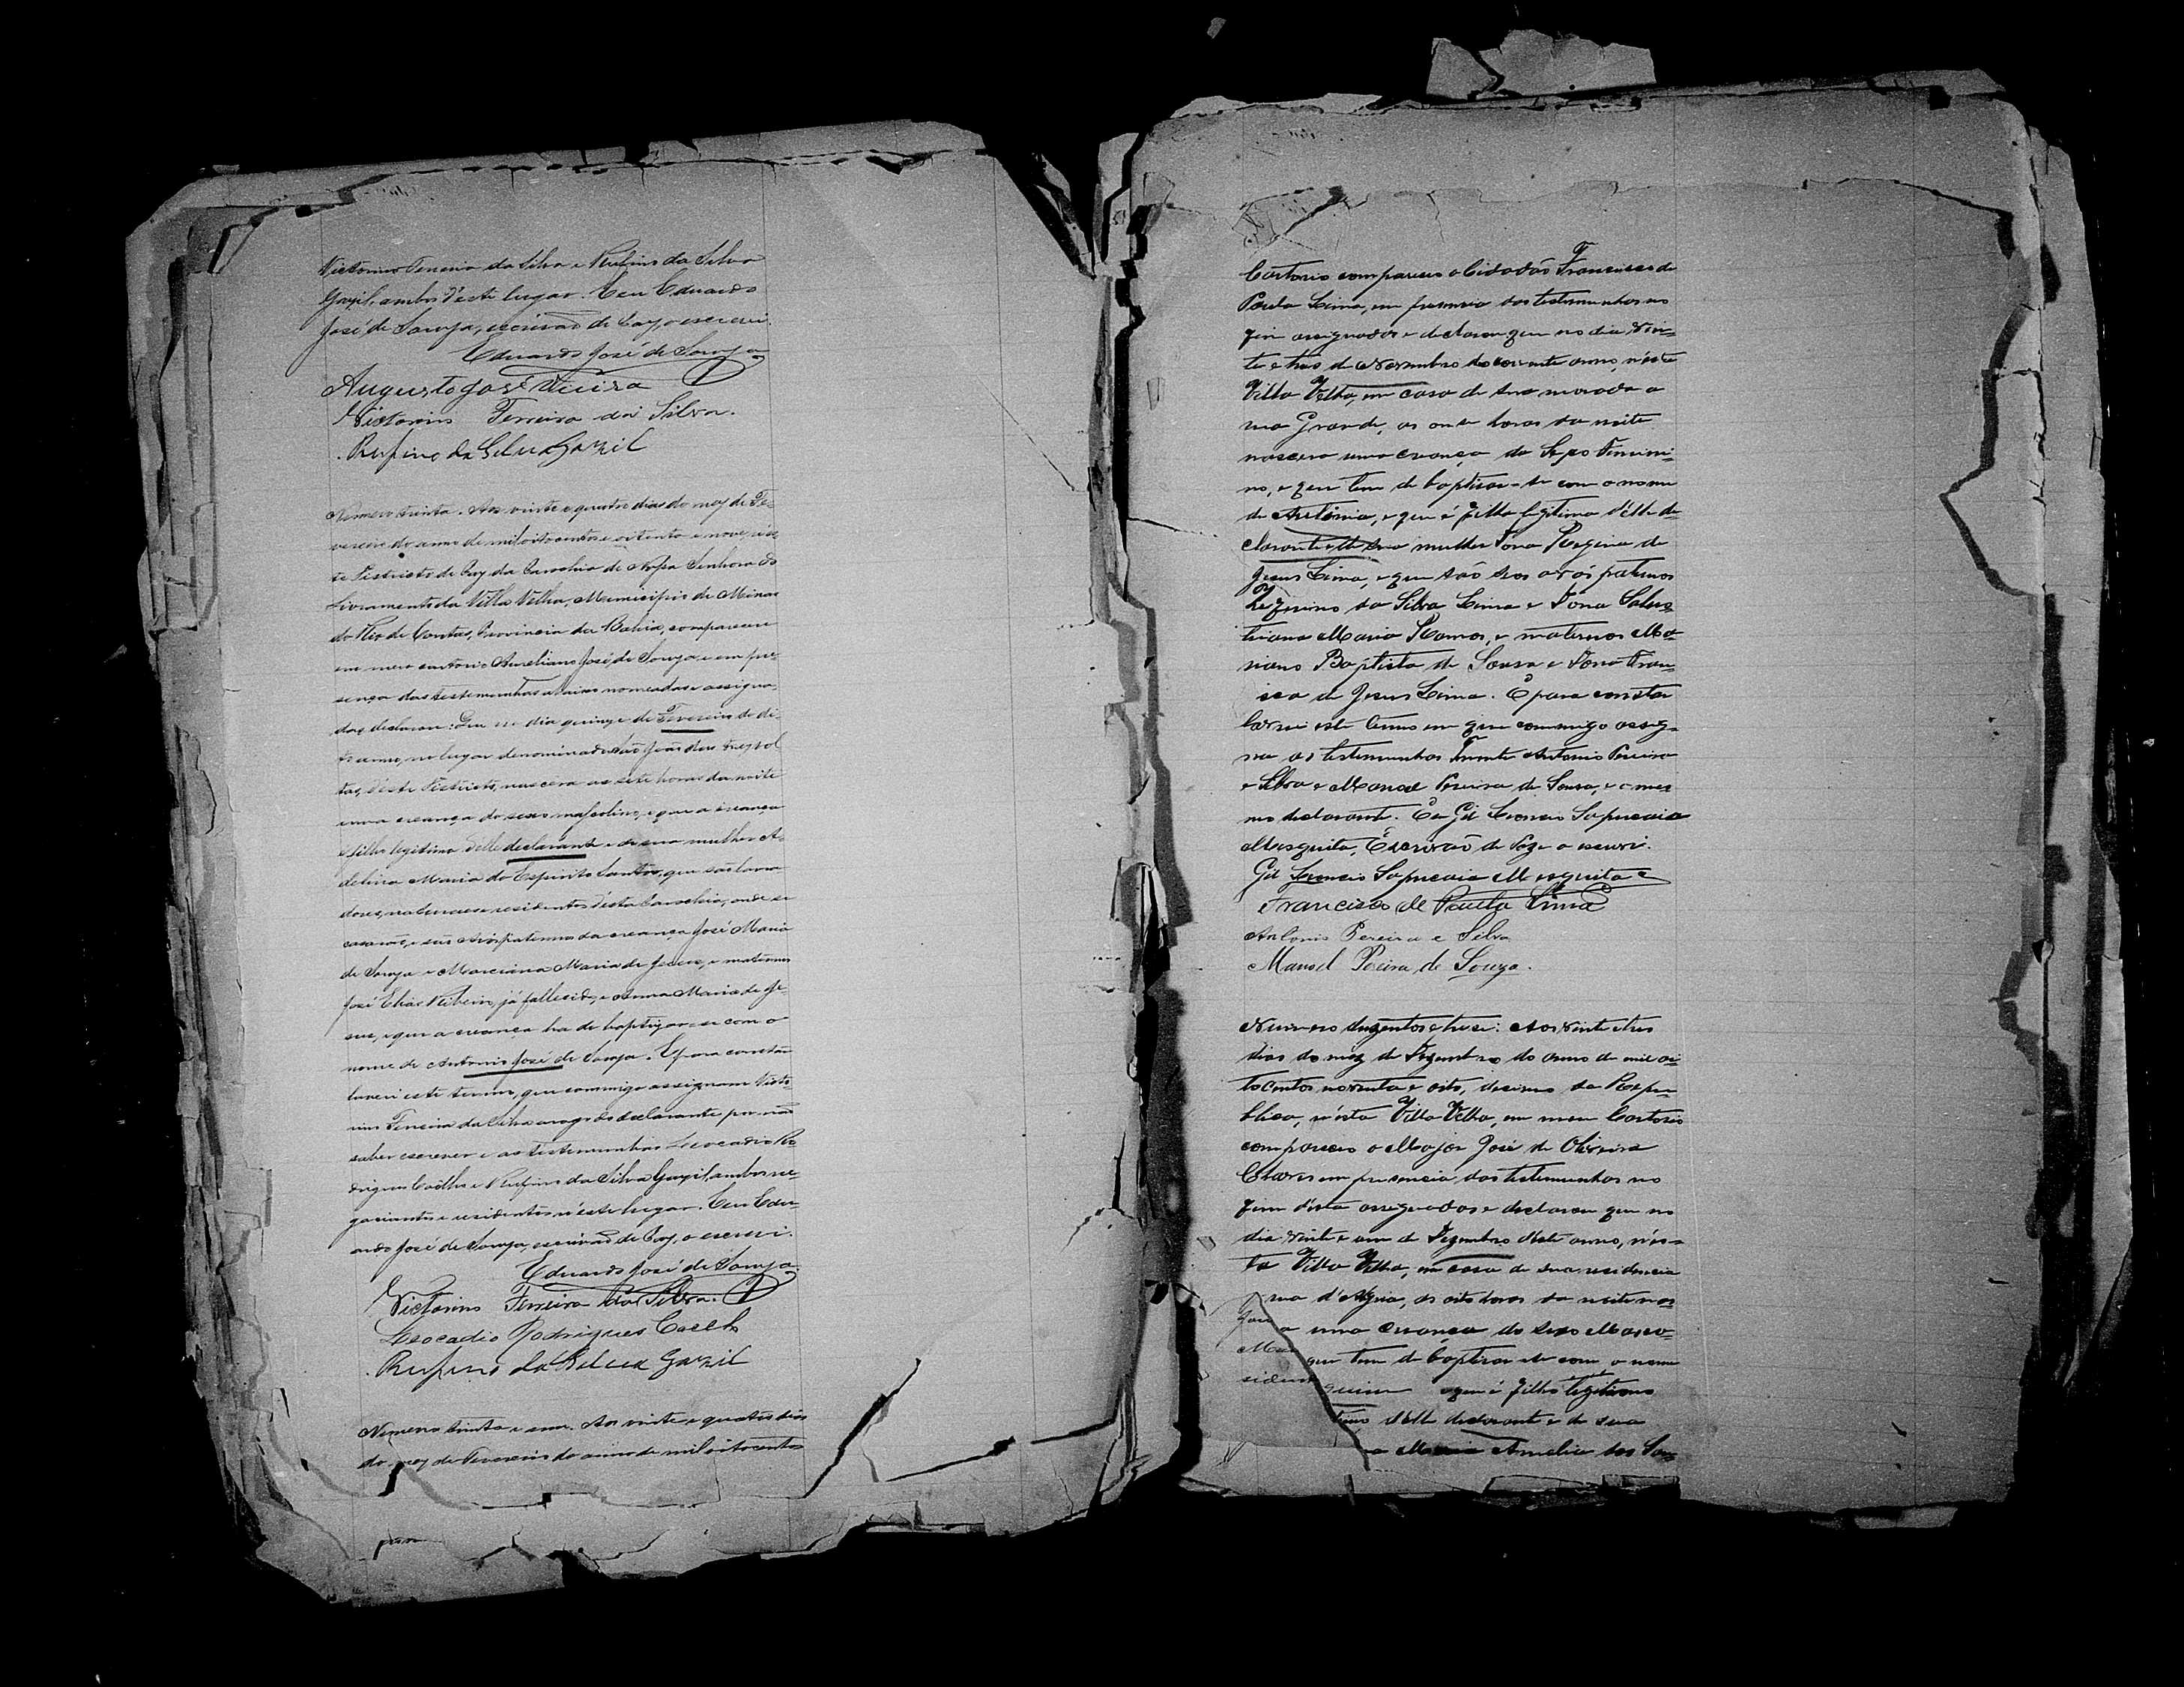 Victorino Ferreira da Silva e Rufino da Silva
Gazil, ambos d'este lugar. Eeu Eduardo
José de Souza, escrivão de Paz, o escrevi.
Eduardo José de Souza
Augusto José Vieira
Victorino Ferreira da Silva.
Rufino da Silva Gazil
Numero trinta. Aos vinte e quatro dias do mez de Fe-
vereiro do anno de mil oitocentos e oitenta e nove, nes-
te Districto de Paz da Parochia de Nossa Senhora do
Livramento da Villa Velha, Municipio de Minas
do Rio de Contas, Provincia da Bahia, compareceu
em meu cartorio Aureliano José de Souza e em pre-
sença das testemunhas abaixo nomeadas e assigna-
das, declarou: Que no dia quinze de Fevereiro do di-
to anno, no lugar denominado São João das
tas, d'este Districto, nascera as sete horas da noite
uma creança do sexo masculino, e que a creança
é filha legitima delle declarante e de sua mulher A-
delina Maria do Espirito Santo, que são lavra
dores, naturaes e residentes d'esta Parochia, onde se
casarão, e são avós paternos da creança José Maria
de Souza e Marciana Maria de Jesus, e maternos
José Elias Ribeiro, já fallecido, e Anna Maria de Je
sus, e que a creança ha de baptizar-se com o
nome de Antonio José de Souza. E para constar
lavrei este termo, que commigo assignam Victo
rino Ferreira da Silva a rogo do declarante por não
saber escrever e as testemunhas Leocadio Ro
drigues Coelho e Rufino da Silva Gazil, ambos ne-
gociantes e residentes n'este lugar. Eeu Edu-
ardo José de Souza, escrivão de Paz, o escrevi.
Eduardo José de Souza
Victorino Ferreira da Silva.
Leocadio Rodrigues Coelho
Rufino da Silva Gazil
Numero trinta e um. Aos vinte e quatro dias
do mez de Fevereiro do anno de mil oitocentos
Cartorio compareceu o Cidadão Francisco de
Paula Lima, em presença das testemunhas no
fim assignadas e declarou que no dia vin-
te e tres de Novembro do corrente anno, n'esta
Villa Velha, em casa de sua morada a
rua Grande, as onze horas da noite
nascera uma creança do Sexo Femini-
no, e que tem de baptisar-se com o nome
de Antonia, e que é filha legitima d'elle de-
clarante e de sua mulher Dona Regina de
Jesus Lima, e que são seos avós paternos
da Silva Lima e Dona Salus-
tiana Maria Ramos, e maternos Ma-
riano Baptista de Sousa e Dona Fran-
sca de Jesus Lima. E para constar
lavrei este termo em que commigo assig-
na as testemunhas Antonio Pereira
e Silva e Manoel Pereira de Sousa, e o mes
mo declarante. Eu Gil Leoncio Sapucaia
Mesquita, Escrivão de Paz o escrevi.
Gil Leoncio Sapucaia Mesquita
Francisco de Paula Lima
Antonio Pereira e Silva
Manoel Pereira de Souza.
Numero duzentos e treze: Aos vinte e tres
dias do mez de Dezembro do anno de mil oi-
tocentos noventa e oito, decimo da Repu-
blica, n'esta Villa Velha, em meu Cartorio
compareceu o Major José de Oliveira
Chaves em presencia das testemunhas no
fim d'esta assignadas e declarou que no
dia vinte e um de Dezembro deste anno, n'es-
ta Villa Velha, em casa de sua residencia
rua d'Agua, as oito horas da noite nas-
a uma creança do sexo Mascu-
que tem de baptisar-se com o nome
quim e que é filho legitimo
timo d'elle declarante e de sua
a Maria Amelia dos San-